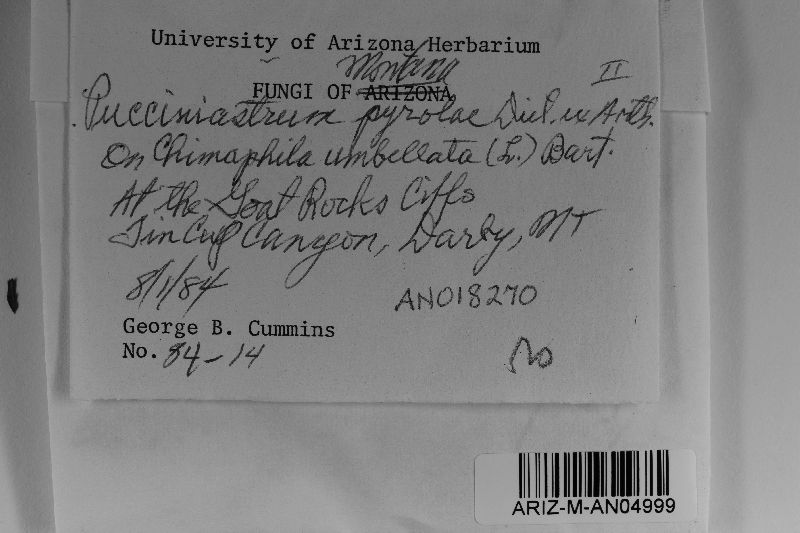 University of Arizona Herbarium
Montana
FUNGI OF ARIZONA II
Pucciniastrum pyrolae Diet. ex Arth.
On Chimaphila umbellata (L.) Bart.
At the Goat Rocks Cliffs
Tin Cup Canyon, Darby, MT
8/1/84
AN018270
George B. Cummins
No. 84-14
ARIZ-M-AN04999